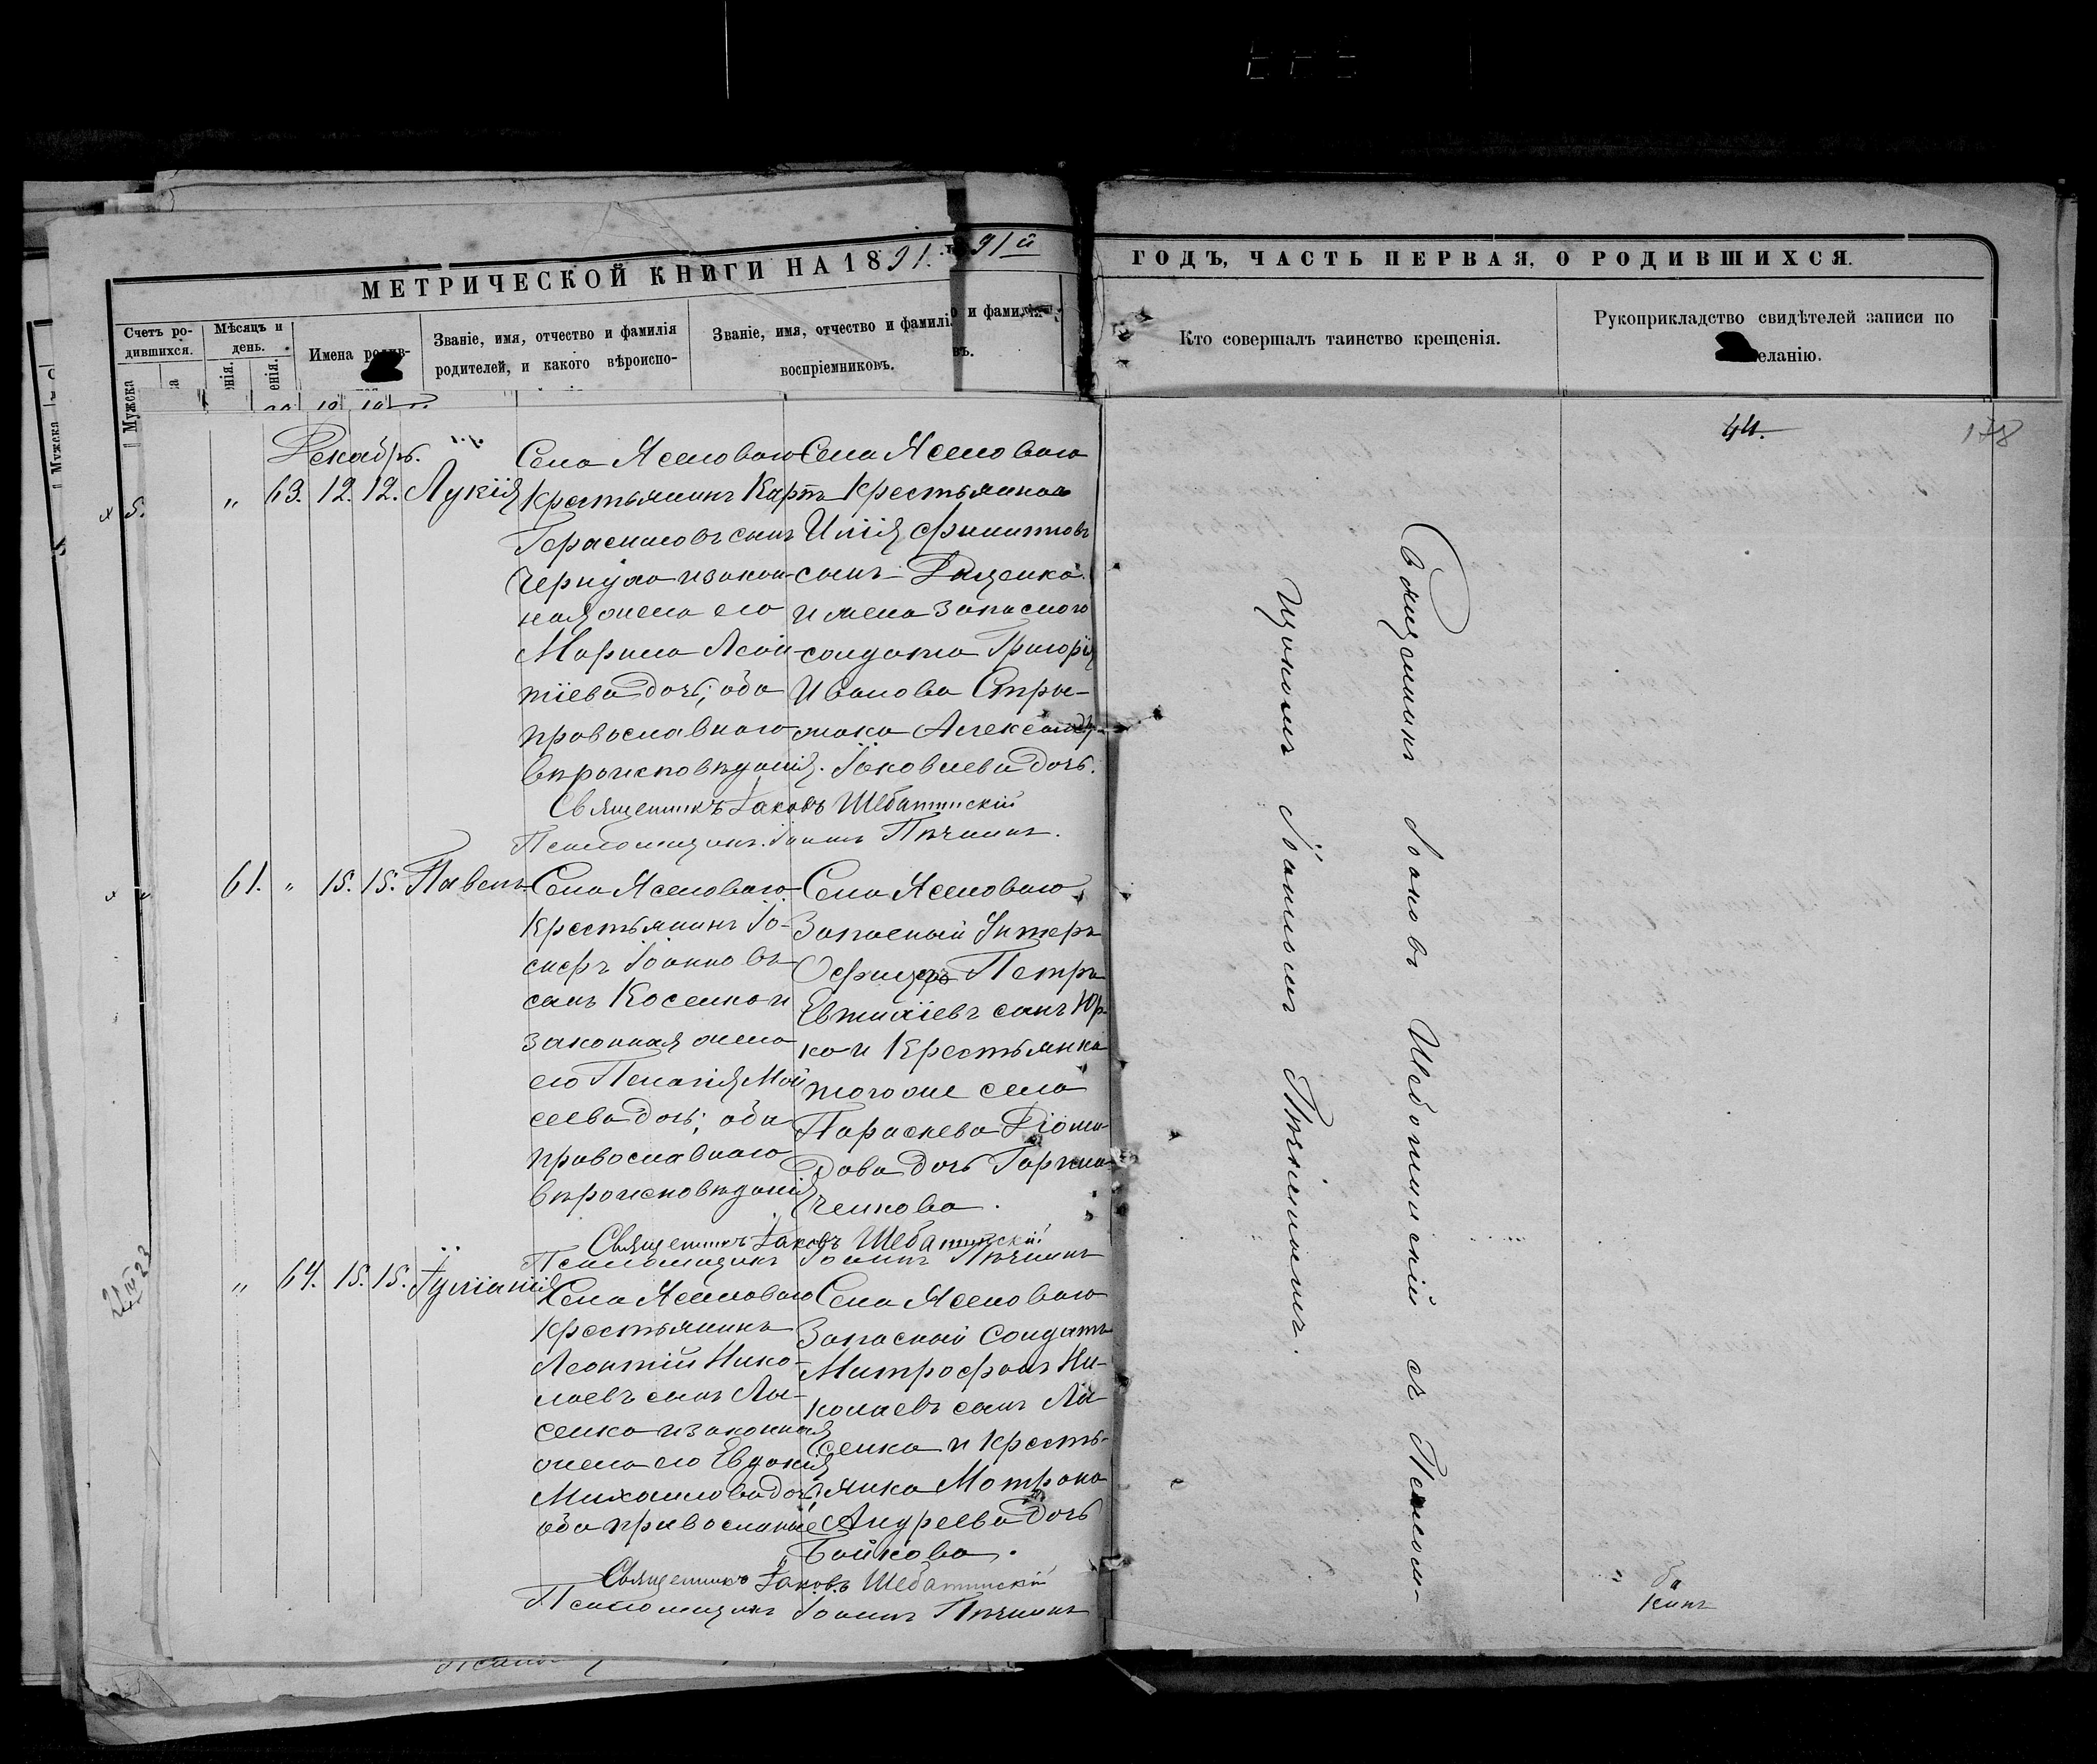 МЕТРИЧЕСКОЙ КНИГИ НА 1891.
91й
ГОДЪ, ЧАСТЬ ПЕРВАЯ, О РОДИВШИХСЯ.
Счетъ ро-
дившихся.
Мѣсяцъ и
день.
Имена родив-
Званіе, имя, отчество и фамилія
родителей, и какого вѣроиспо-
Званіе, имя, отчество и фамилі
воспріемниковъ.
Кто совершалъ таинство крещенія.
Рукоприкладство свидѣтелей записи по
еланію.
Мужска
44.
178
Декабрь.
„ 63. 12. 12. Лукія
Села Ясеноваго
Крестьянинъ Карпъ
Герасимовъ сынъ
Чернуха и закон-
ная жена его
Марина Леон-
тіева дочь; оба
православнаго
вѣроисповѣданія.
Села Ясеноваго
Крестьянинъ
Илія Филиповъ
сынъ
и жена Запаснаго
солдата Григорія
Иванова Стри-
жака Александра
Іаковлева дочь.
Священникъ Іаковъ Шебатинскій
Псаломщикъ Іоаннъ
61. „ 15. 15. Павелъ
Села Ясеноваго
Крестьянинъ Іо-
сифъ Іоанновъ
сынъ Косенко и
законная жена
его Пелагія Мой
сеева дочь; оба
православнаго
вѣроисповѣданія
Села Ясеноваго
Запасный Унтеръ
Офицеръ Петръ
Евтихіевъ сынъ Юр-
ко и Крестьянка
того же села
Параскева Діоми-
дова дочь
Священникъ Іаковъ Шебатинскій
Псаломщикъ Іоаннъ
„ 64. 15. 15. Іуліанія
Села Ясеноваго
Крестьянинъ
Леонтій Нико-
лаевъ сынъ Лы-
сенко и законная
жена его Евдокія
Михаилова дочь;
оба православные
Села Ясеноваго
Запасный Солдатъ
Митрофанъ Ни-
колаевъ сынъ Лы-
сенко и Кресть-
янка Матрона
Андреева дочь
Бойкова.
Священникъ Іаковъ Шебатинскій
Псаломщикъ Іоаннъ
Священникъ Іаковъ Шебатинскій съ Псалом-
щикомъ Іоанномъ